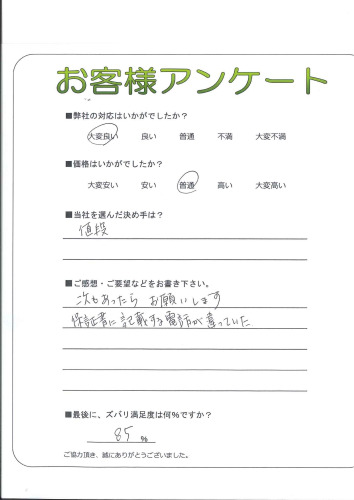 お客様アンケート
■弊社の対応はいかがでしたか?
大変良い 良い 普通 不満 大変不満
■価格はいかがでしたか?
大変安い 安い 普通 高い 大変高い
■当社を選んだ決め手は?
値段
■ご感想・ご要望などをお書き下さい。
次もあったら お願いします
保証書に記載する電話が違っていた
■最後に、ズバリ満足度は何%ですか?
85 %
ご協力頂き、誠にありがとうございました。